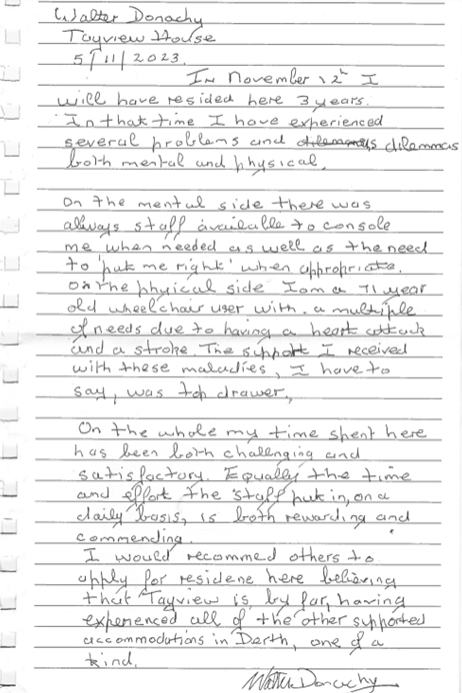 Walter Donachy
Tayview House
5/11/2023.
In November 12th I
will have resided here 3 years.
In that time I have experienced
several problems and dilemmas
both mental and physical.
On the mental side there was
always staff available to console
me when needed as well as the need
to 'put me right' when appropriate.
On the physical side I am a 71 year
old wheelchair user with a multiple
of needs due to having a heart attack
and a stroke. The support I received
with these maladies, I have to
say, was top drawer.
On the whole my time spent here
has been both challenging and
satisfactory. Equally the time
and effort the staff put in, on a
daily basis, is both rewarding and
commending.
I would recommed others to
apply for residene here believing
that Tayview is, by far, having
experienced all of the other supported
accommodations in Perth, one of a
kind.
Walter Donachy